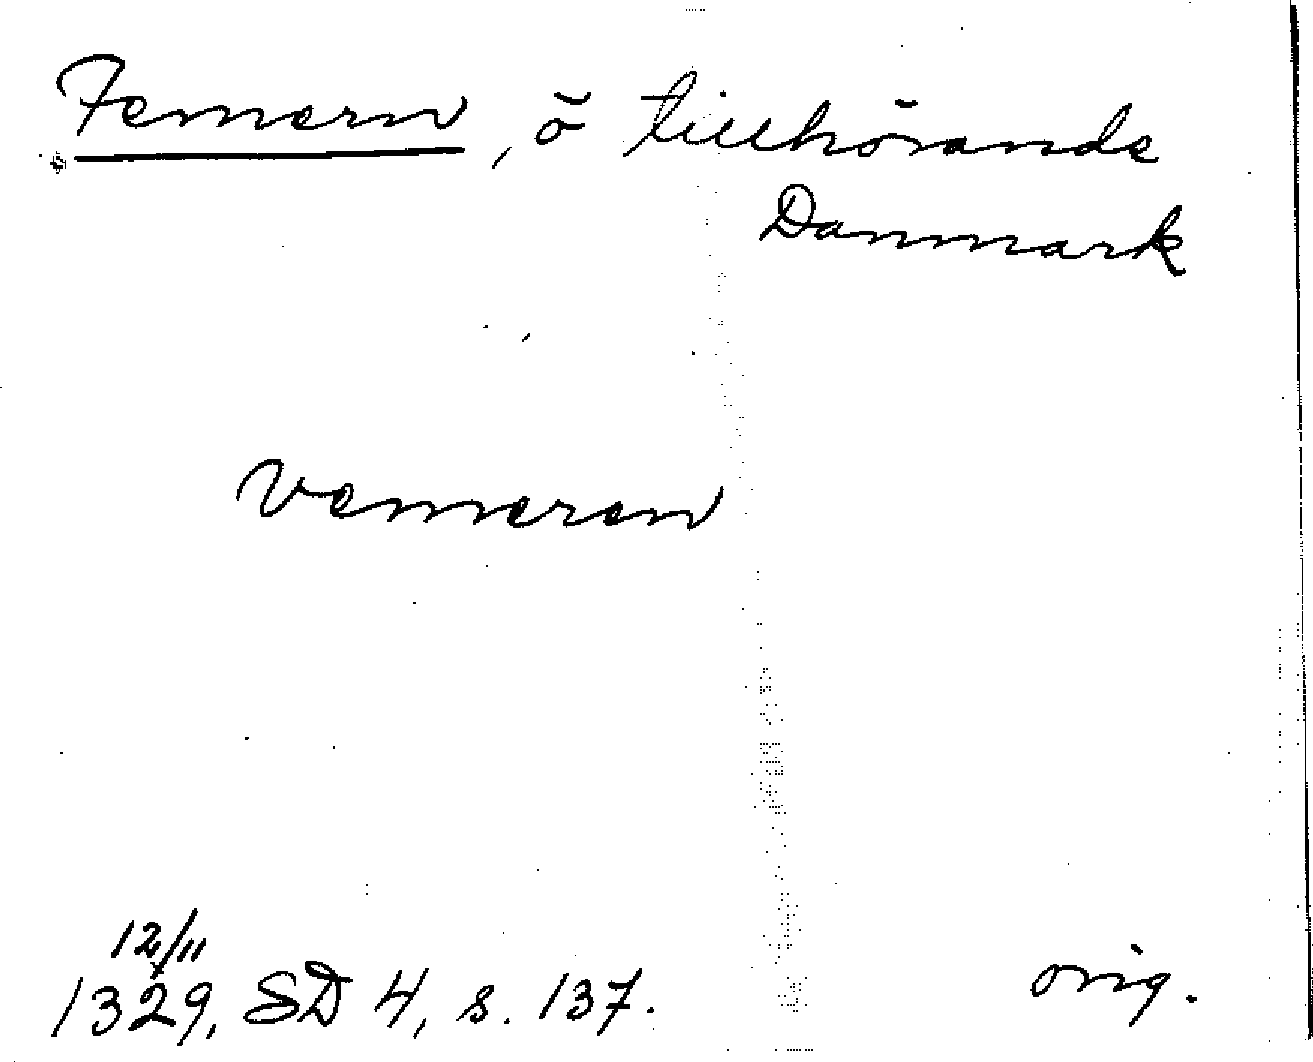 Femern, ö tillhörande
Danmark
Vemeren
12/11
1329, SD 4, s. 137. orig.